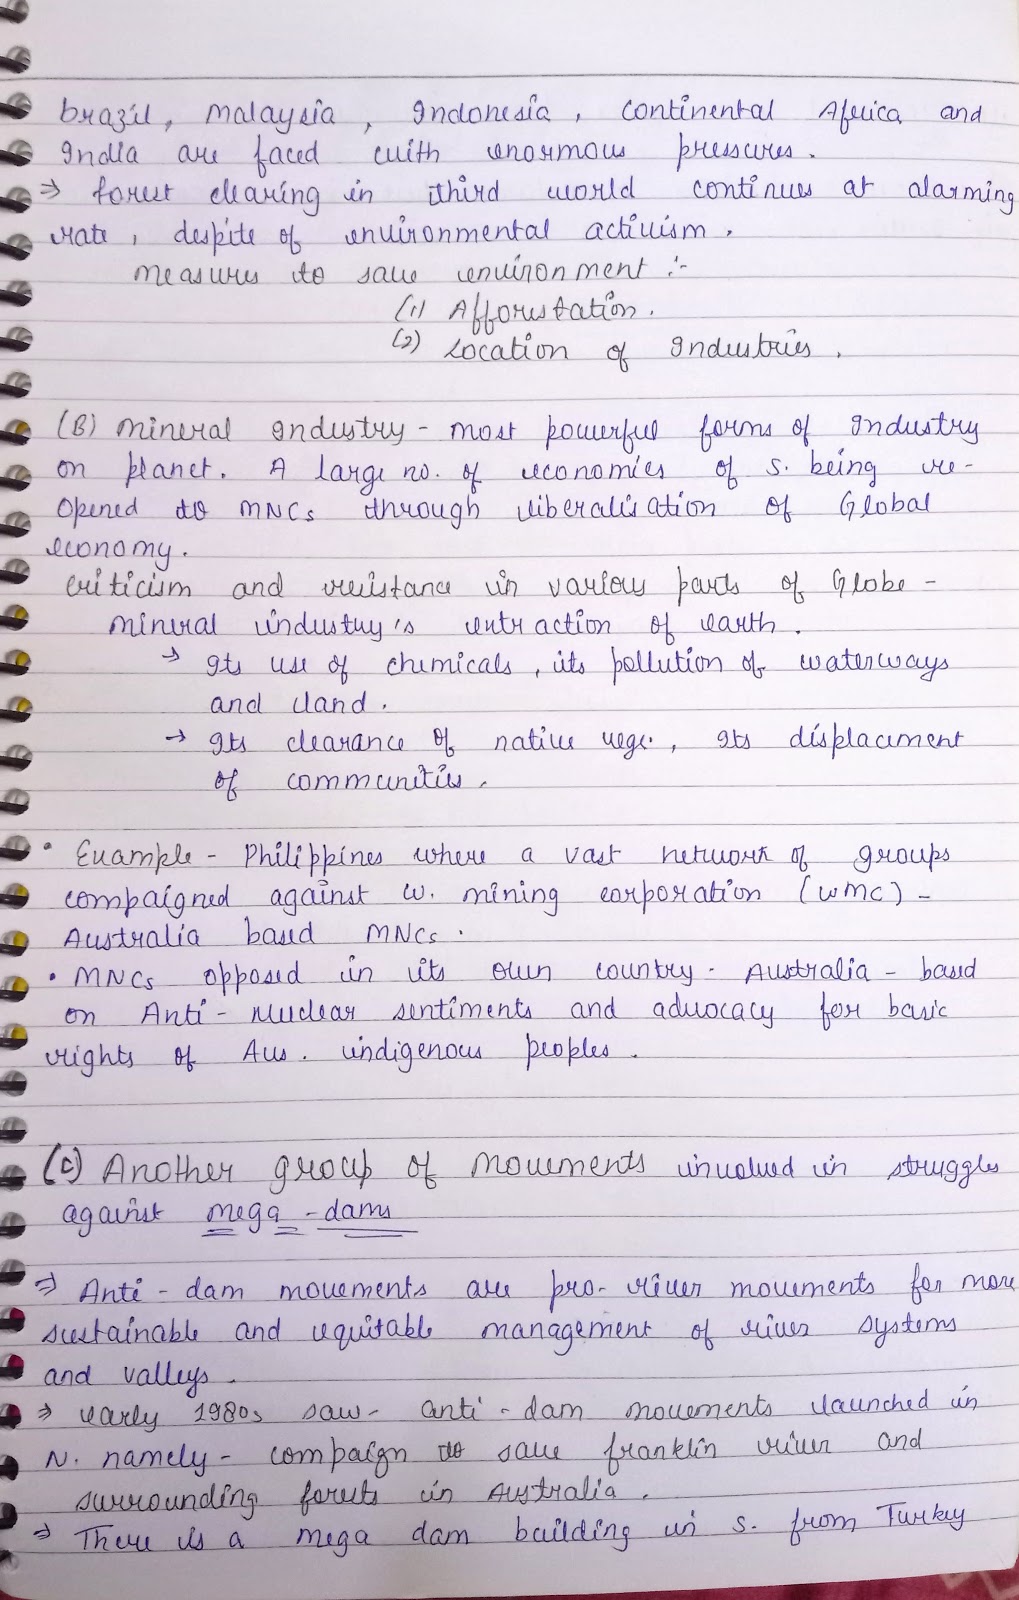 brazil, malaysia, Indonesia, continental Africa and
India are faced with enormous pressures.
⇒ forest clearing in third world continues at alarming
rate, despite of environmental activism.
measures to save environment :-
(1) Afforestation.
(2) Location of Industries.
(B) mineral Industry - most powerful forms of Industry
on planet. A large no. of economies of S. being re-
opened to MNCs through liberalisation of Global
economy.
criticism and resistance in various parts of Globe -
mineral industry's extraction of earth.
→ Its use of chemicals, its pollution of waterways
and land.
→ Its clearance of native vege., Its displacement
of communities.
• Example - Philippines where a vast network of groups
compaigned against w. mining corporation (WMC) -
Australia based MNCs.
• MNCs opposed in its own country - Australia - based
on Anti - Nuclear sentiments and advocacy for basic
rights of Aus. indigenous peoples.
(C) Another group of movements involved in struggles
against mega - dams
⇒ Anti - dam movements are pro- river movements for more
sustainable and equitable management of river systems
and valleys.
⇒ early 1980s saw - anti - dam movements launched in
N. namely - compaign to save franklin river and
surrounding forests in Australia.
⇒ There is a mega dam building in S. from Turkey